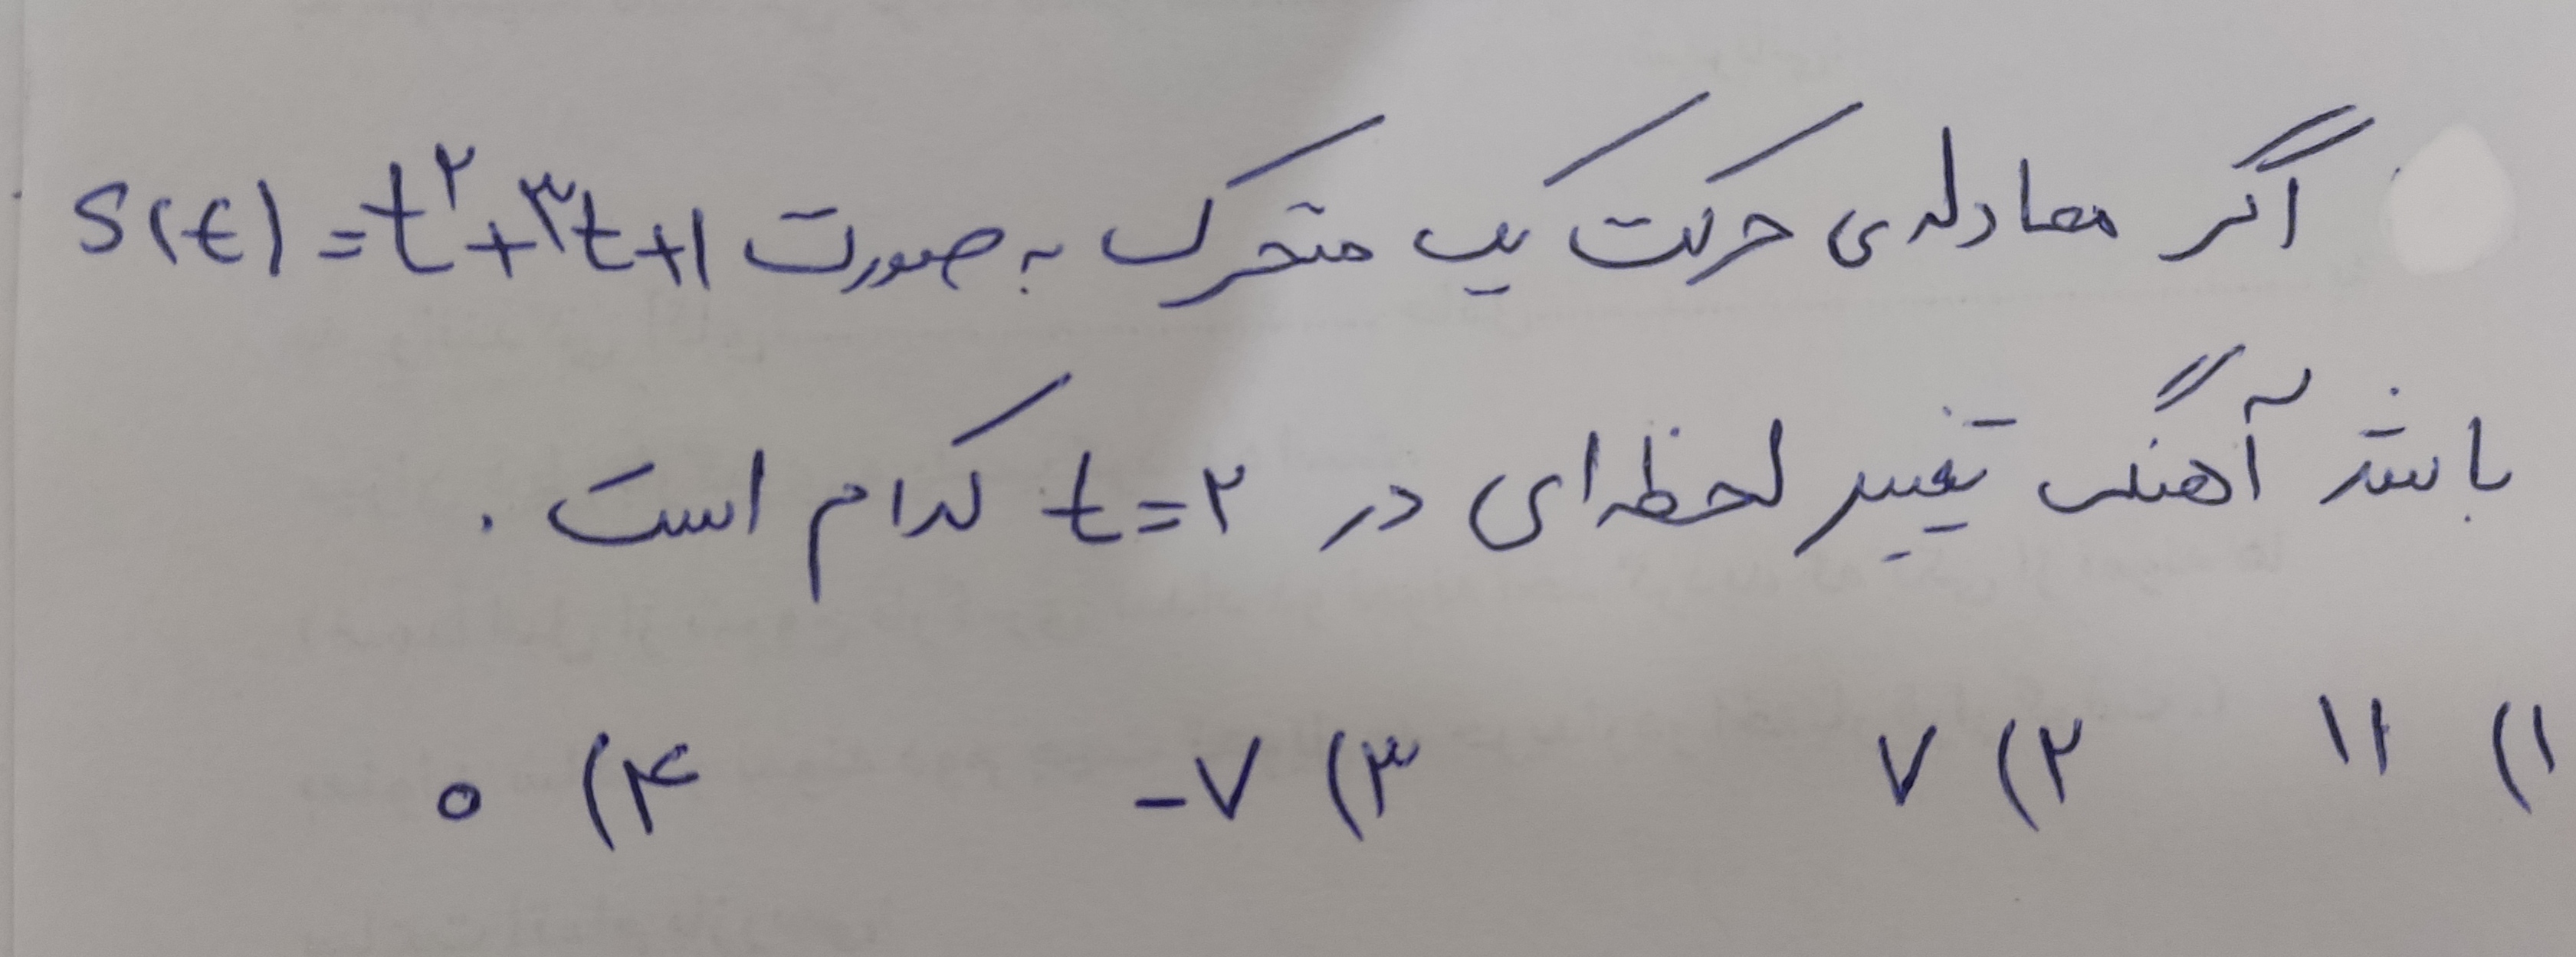 اگر معادله ی حرکت یک متحرک به صورت S(t) = t^۲ + ۳t + ۱
باشد آهنگ تغییر لحظه ای در t = ۲ کدام است .
۱) ۱۱ ۲) ۷ ۳) -۷ ۴) ۰